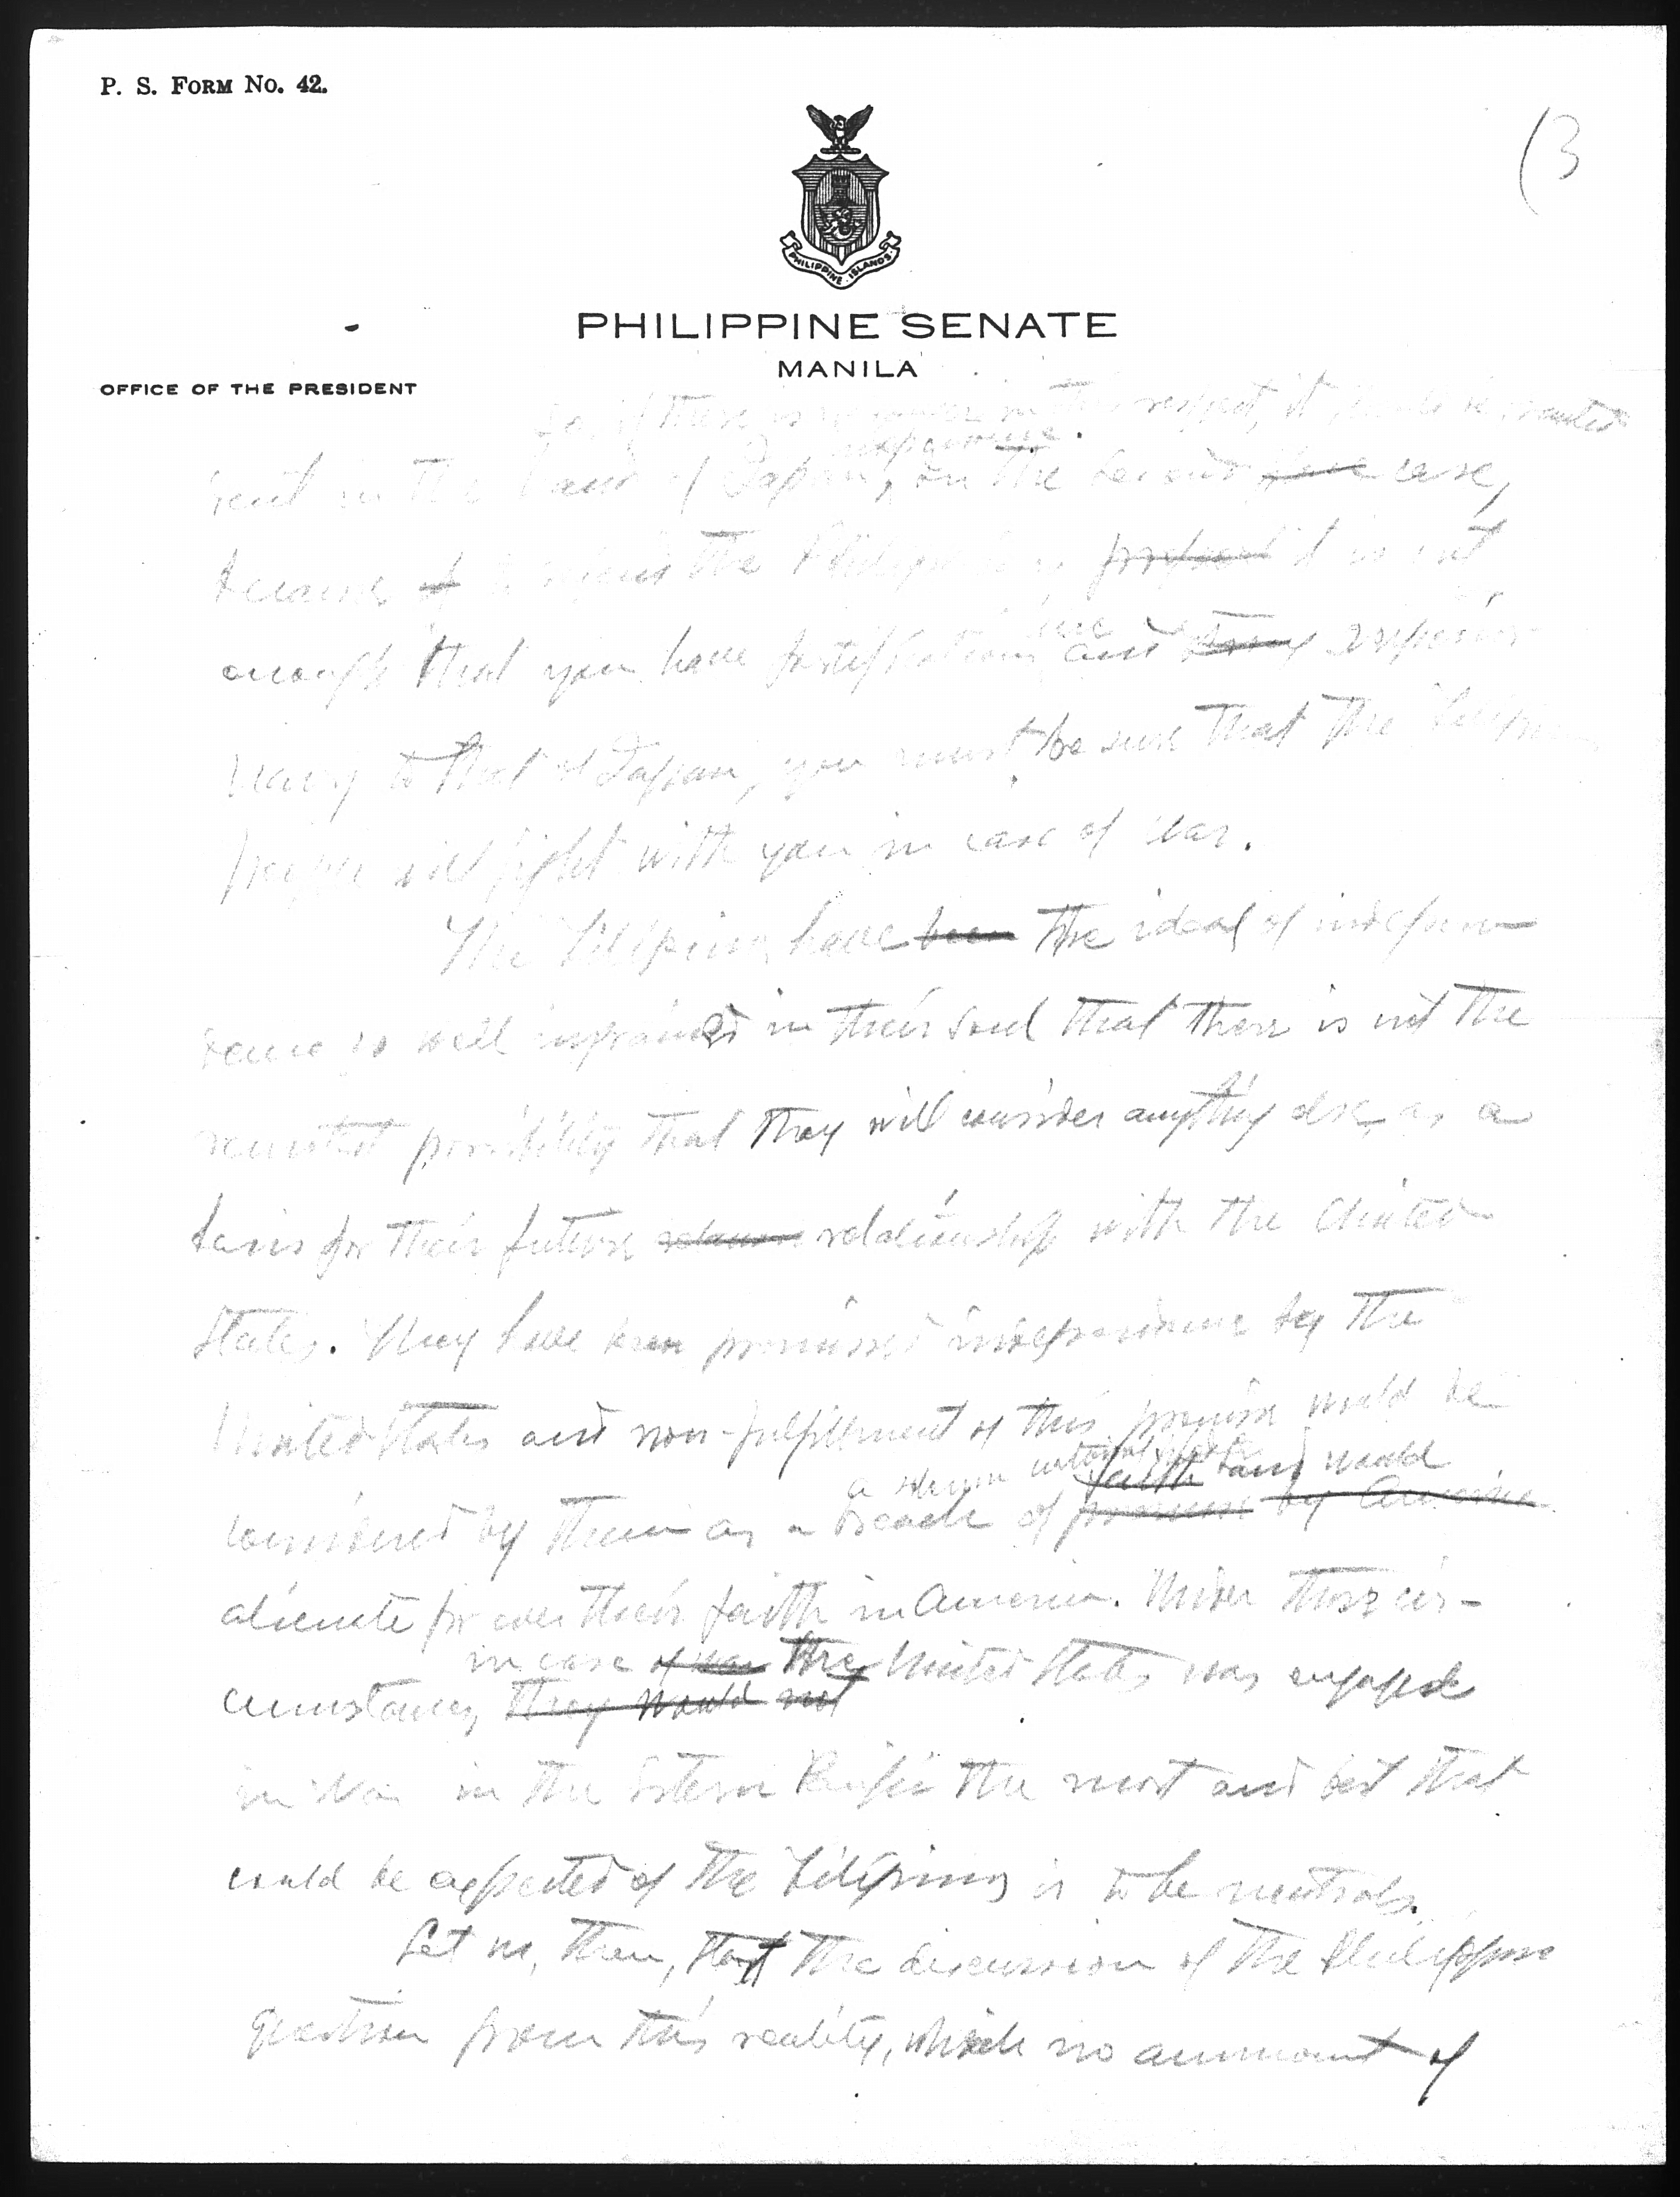 P. S. FORM NO. 42.
(3
PHILIPPINE ISLANDS
PHILIPPINE SENATE
MANILA
OFFICE OF THE PRESIDENT
if there is in this respect, it
in the hand of Japan, on the second case,
because the it is not
enough that you have fortifications and navy superior
to that of Japan, you must be sure that the
people will fight with you in case of war.
The Filipinos have been the ideal of indepen-
dence so well ingrained in their soul that there is not the
remotest possibility that they will consider anything else as a
basis for their future relationship with the United
States. They have been promised independence by the
United States and non-fulfillment of this promise would be
a solemn national faith and would
considered by them as a breach of promise by America
alienate for ever their faith in America. Under those cir-
in case of war the United States was engaged
cumstances, they would not
in War in the Pacific the most and best that
could be expected of the Filipinos is to be neutrals.
Let us, then, start the discussion of the Philippine
question from this reality, which no ammount of